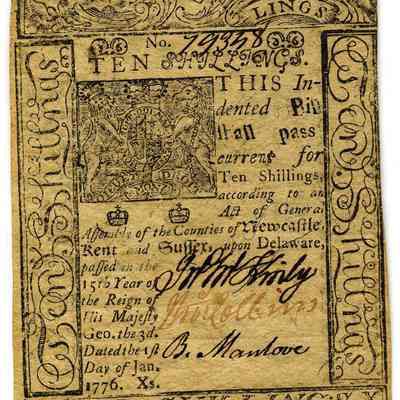 LINGS.
No. 29358
TEN SHILLINGS.
THIS In-
dented Bill
shall pass
current for
Ten Shillings,
according to an
Act of General
Assemble of the Counties of Newcastle,
Kent and Sussex, upon Delaware,
passed in the
15th Year of
the Reign of
His Majesty
Geo. the 3d.
Dated the 1st
Day of Jan.
1776. Xs.
Jno McKinly
Jno Collins
B. Manlove
Ten Shillings
Ten Shillings